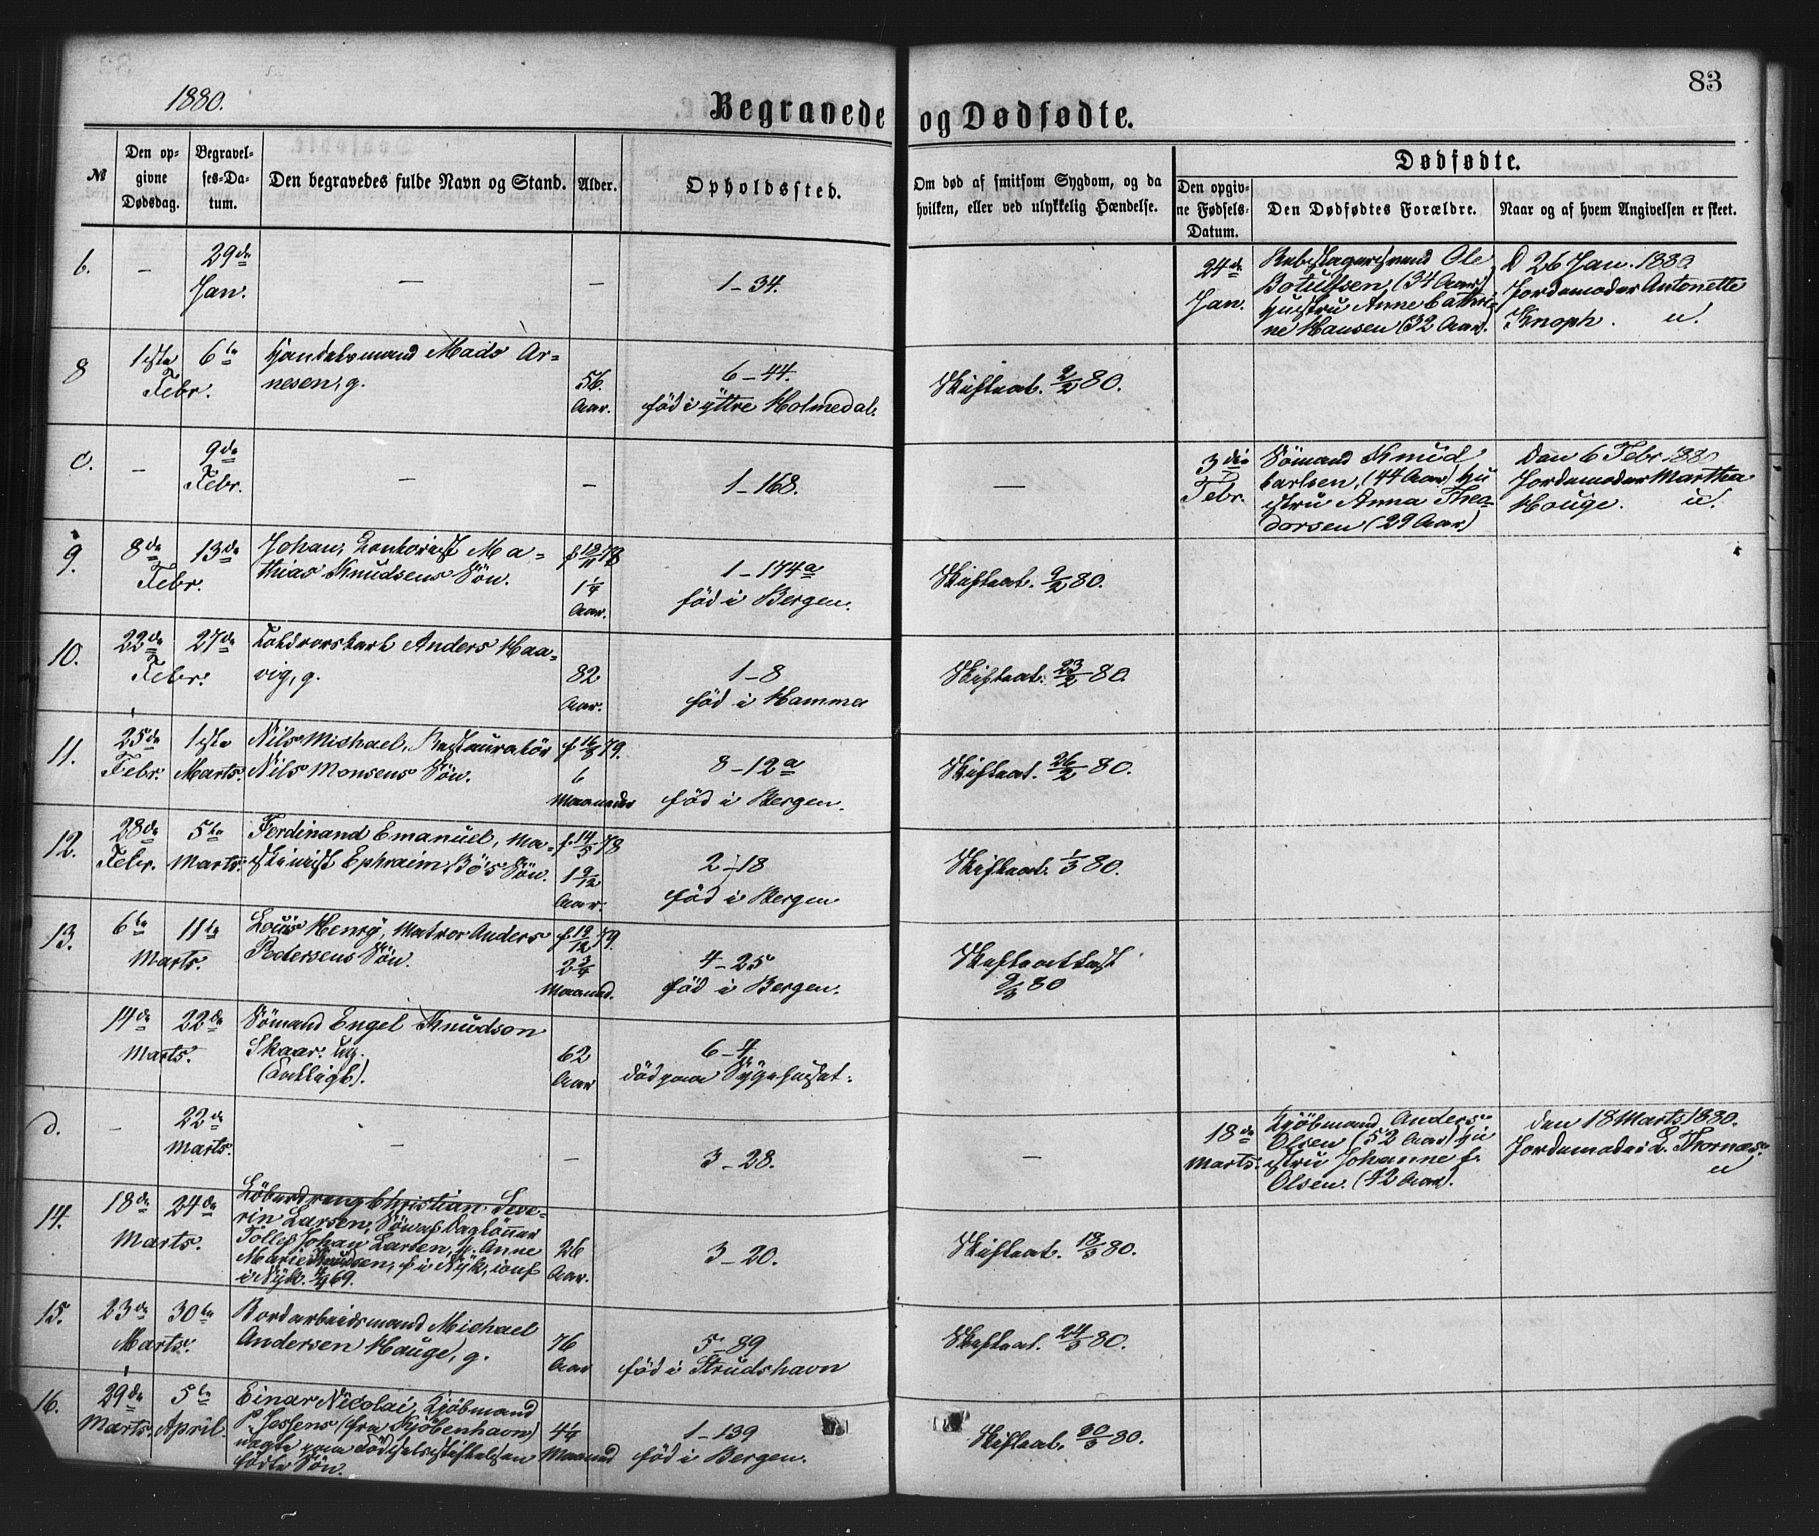 1880.
Begravede og Dødfødte.
83
№
Den opgivne Dødsdag.
Begravelses-Datum.
Den begravedes fulde Navn og Stand.
Alder.
Opholdssted.
Om død af smitsom Sygdom, og da hvilken, eller ved ulykkelig Hændelse.
Dødfødte.
Den opgivne Fødsels-Datum.
Den Dødfødtes Forældre.
Naar og af hvem Angivelsen er skeet.
b. — 29de Jan. — — 1–34. 24de Jan.
Rebslagersvend Ole
Botulfsen, (34 Aar)
Hustru Anne Cathri-
ne Hansen (32 Aar.)
D 26 Jan. 1880.
Jordemoder Antonette
Knoph. u.
8 1ste Febr. 6te
Handelsmand Mads Ar-
nesen, g.
56. Aar.
6–44.
fød i yttre Holmedal.
Skifteat. 2/2 80.
c. — 9de Febr. — — 1–168. — 3die Febr.
Sömand Knud
Carlsen, (44 Aar) Hu
stru Anna Theo-
dorsen (29 Aar)
Den 6 Febr. 1880
Jordemoder Marthea
Houge. u.
9. 8de Febr. 13de
Johan, Contorist Ma-
thias Knudsens Sön.
f. 12/11 78
1 1/4
Aar.
1–174a
föd i Bergen.
Skifteat. 9/2 80.
10. 22de Febr. 27de
Toldrorskarl Anders Haa-
vig, g.
82
Aar.
1–8
föd i Hammer
Skifteat. 23/2 80.
11. 25de Febr. 1ste Marts.
Nils Michael, Restauratör
Nils Monsens Sön.
f. 16/8 79.
6
Maaneder
8–12a
föd i Bergen.
Skifteat. 26/2 80.
12. 28de Febr. 5te Marts.
Ferdinand Emanuel, Ma-
skinist Ephraim Bö's Sön.
f. 14/5 78
1 9/12
Aar.
2–18
föd i Bergen
Skifteat. 1/3 80.
13. 6te 11te Marts.
Louis Henry, Matros Anders
Pedersens Sön.
f. 19/12 79.
2 3/4
Maaned.
4–25
föd i Bergen.
Skifteattest
9/3 80
14de 22de Marts.
Sömand Engel Knudson
Skaar. ug.
62
Aar
6–4
död paa Sygehuset.
d. — 22de Marts. — — 3–28. — 18de Marts.
Kjöbmand Anders
Olsen (52 Aar) Hu
stru Johanne f.
Olsen. (42 Aar).
den 18 Marts 1880.
Jordemoder L. Thomas.
u
14. 18de 24de Marts.
Löbedreng Christian Seve-
rin Larsen, Sön af Daglönner
Tolles Johan Larsen, H. Anne
Marie Knudsen, f i Nyk, conf
i Nyk. 69.
26
Aar.
3–20.
Skifteat. 18/3 80.
15. 23de 30te Marts.
Bordarbeidsmand Michael
Andersen Hauge, g.
76
Aar
5–89
föd i Strudshavn
Skifteat. 24/3 80.
16. 29de Marts. 5te April.
Einar Nicolai, Kjöbmand
P. Jessens (fra Kjöbenhavn)
paa Födselsstiftelsen
födte Sön.
4 1/4
Maaned
1–139
föd i Bergen.
Skifteat. 30/3 80.